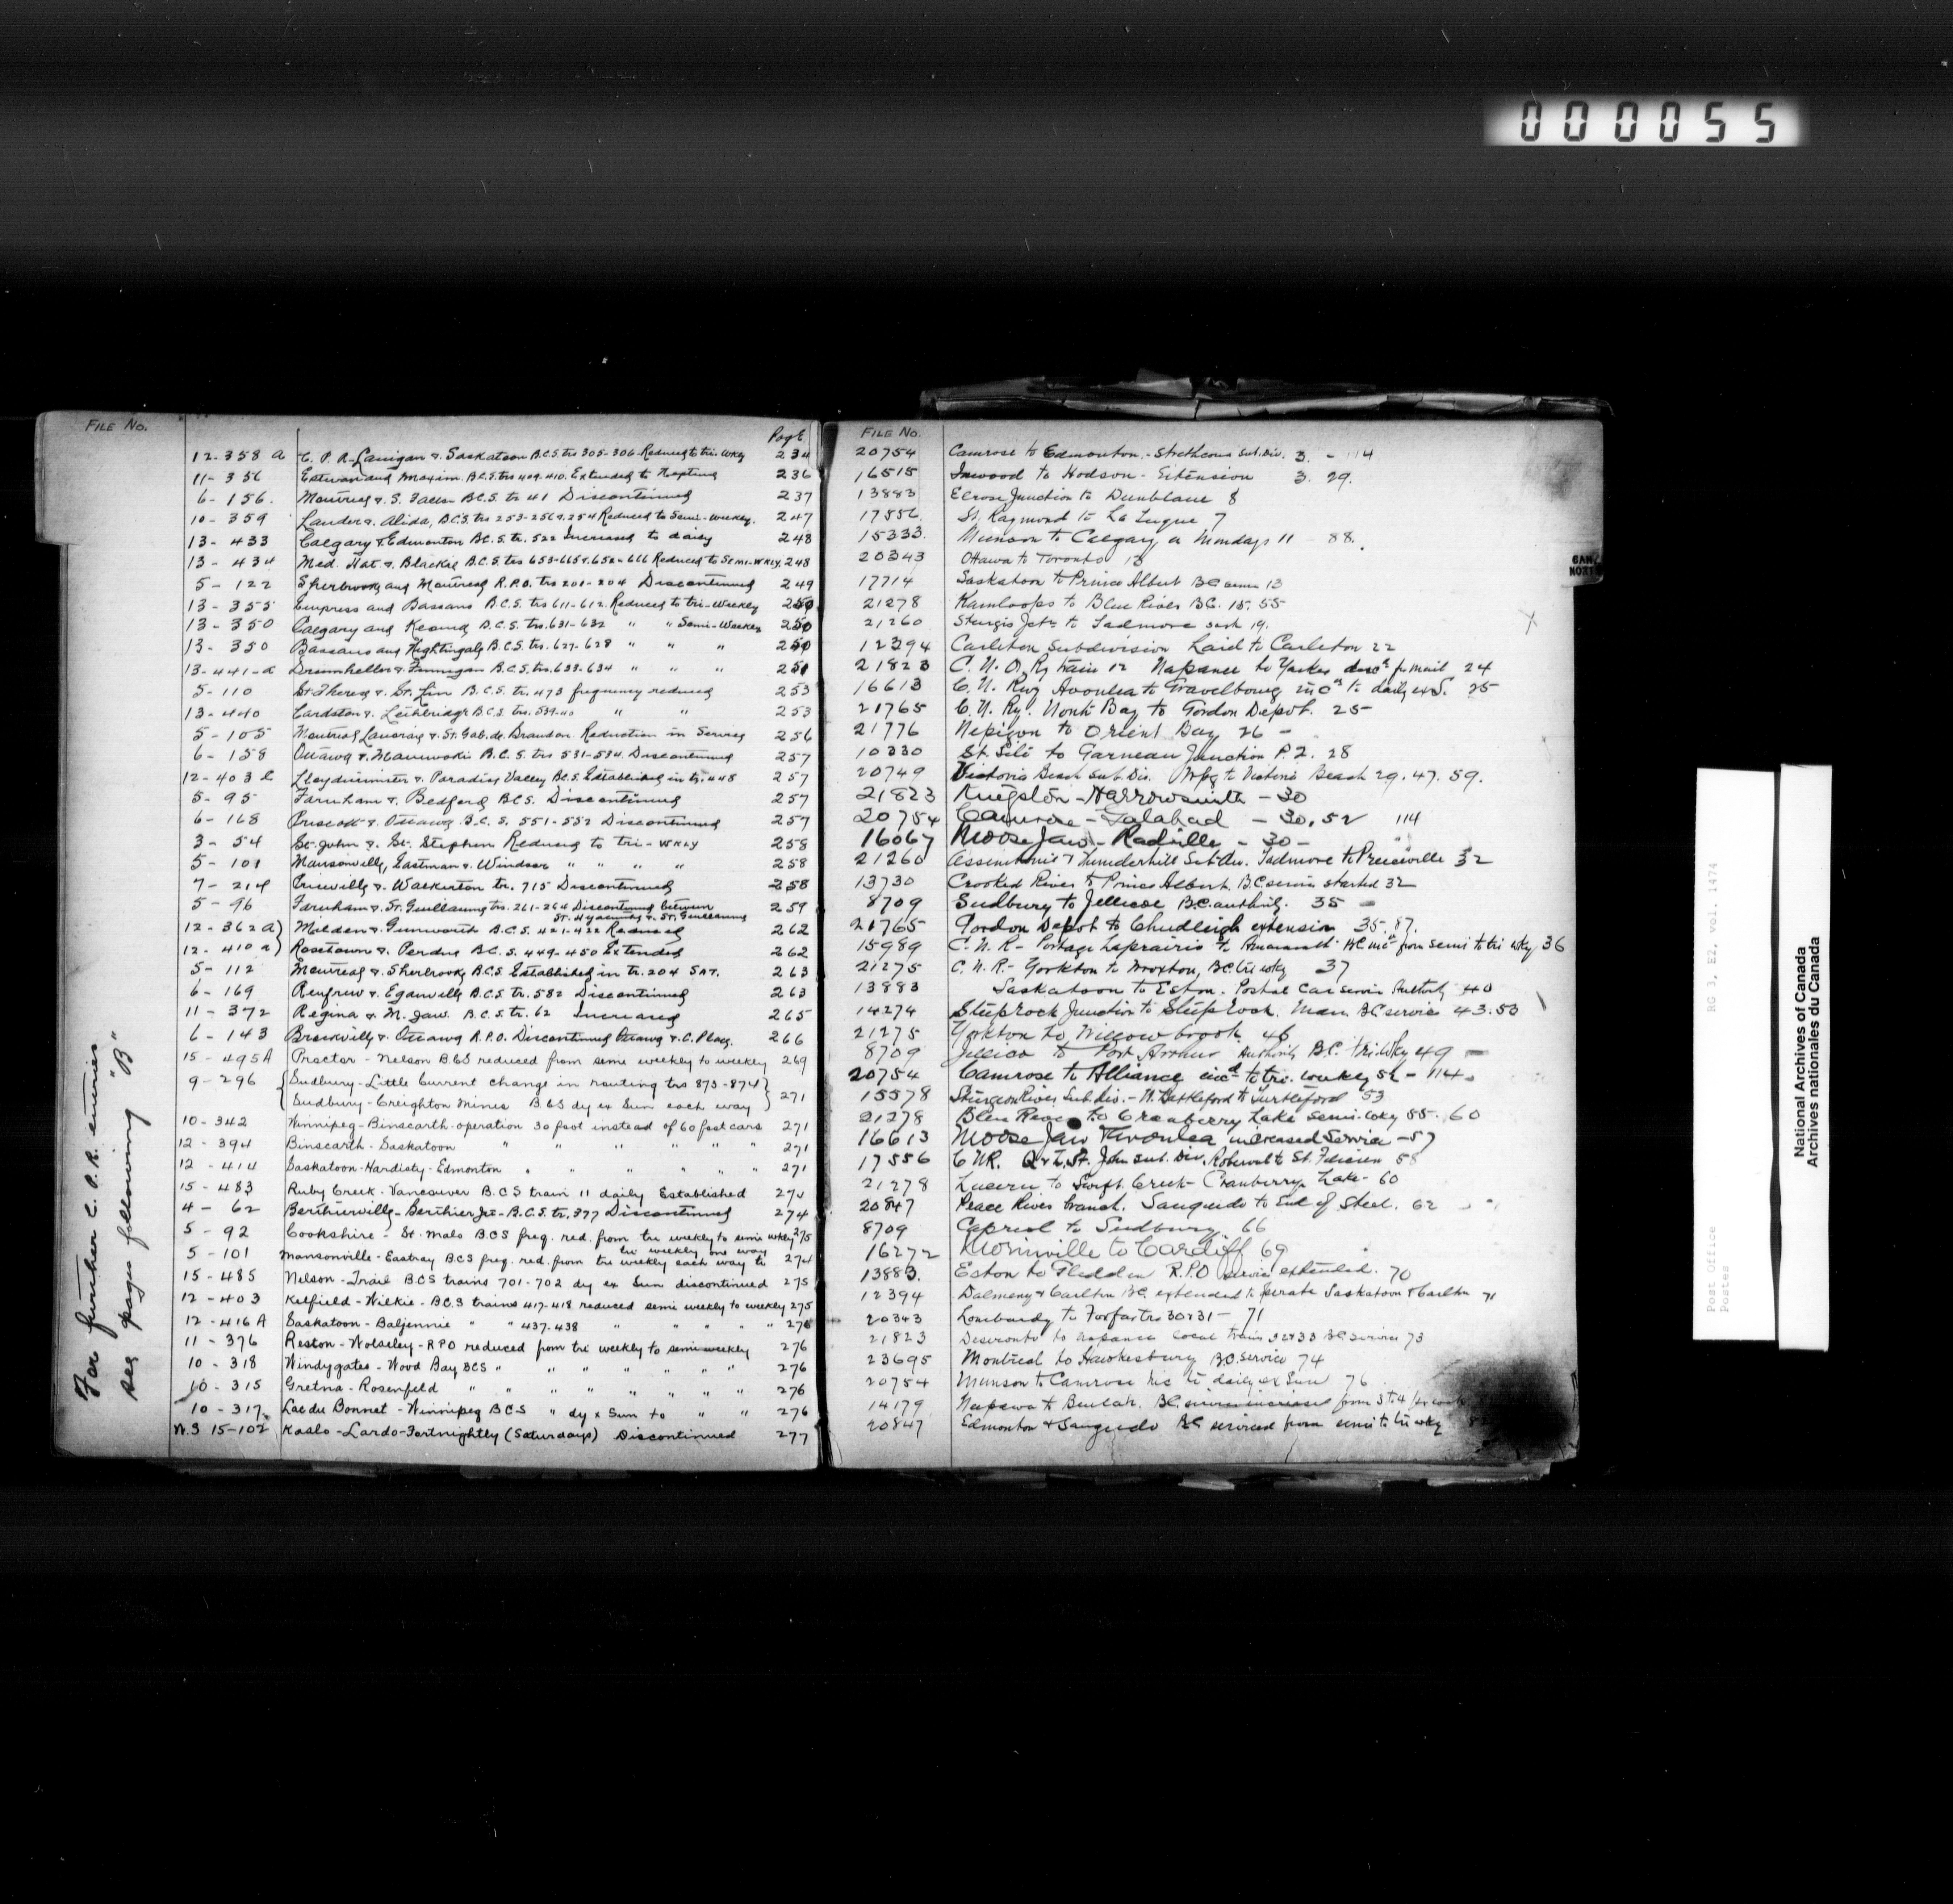 000055
FILE No.
Page
12-358 a C. P. R. Lanigan & Saskatoon B.C.S. trs 305-306 Reduced to tri-wkly 234
11-356 Estevan and Maxim B.C.S. trs 409-410. Extended to Neptune 236
6-156. Montreal & S. Falls B.C.S. tr 41 Discontinued 237
10-359 Lauder & Alida, B.C.S. trs 253-256 & 254 Reduced to Semi-weekly. 247
13-433 Calgary & Edmonton B.C.S. tr. 522 Increased to daily 248
13-434 Med. Hat. & Blackie B.C.S. trs 653-665 & 652-666 Reduced to Semi-wkly. 248
5-122 Sherbrooke and Montreal R.P.O. trs 201-204 Discontinued 249
13-355 Empress and Bassano B.C.S. trs 611-612. Reduced to tri-weekly 250
13-350 Calgary and Keoma B.C.S. trs. 631-632 " " Semi-weekly 250
13-350 Bassano and Nightingale B.C.S. trs. 627-628 " " " 250
13-441-a Drumheller & Finnegan B.C.S. trs. 633-634 " " " 251
5-110 St. Therese & St. Lin B.C.S. tr. 473 frequency reduced 253
13-440 Cardston & Lethbridge B.C.S. trs. 539-40 " " 253
5-105 Montreal, Lanoraie & St. Gab. de Brandon Reduction in Service 256
6-158 Ottawa & Maniwaki B.C.S. trs 531-534 Discontinued 257
12-403 Lloydminster & Paradise Valley B.C.S. Established in tr. 448 257
5-95 Farnham & Bedford B.C.S. Discontinued 257
6-168 Prescott & Ottawa B.C.S. 551-552 Discontinued 257
3-54 St. John & St. Stephen Reduced to tri-wkly 258
5-101 Mansonville, Eastman & Windsor " " " " 258
7-214 Priceville & Walkerton tr. 715 Discontinued 258
5-96 Farnham & St. Guillaume trs. 261-264 Discontinued between 259
St. Hyacinthe & St. Guillaume
12-362a} Milden & Gunworth B.C.S. 421-422 Reduced 262
12-410a} Rosetown & Perdue B.C.S. 449-450 Extended 262
5-112 Montreal & Sherbrooke B.C.S. Established in tr. 204 SAT. 263
6-169 Renfrew & Eganville B.C.S. tr. 582 Discontinued 263
11-372 Regina & M. Jaw. B.C.S. tr. 62 Increased 265
6-143 Brockville & Ottawa R.P.O. Discontinued Ottawa & C. Place. 266
15-495A Procter - Nelson BCS reduced from semi weekly to weekly 269
9-296 {Sudbury - Little Current change in routing trs 873-874}
{Sudbury - Creighton Mines BCS dy ex Sun each way } 271
10-342 Winnipeg - Binscarth operation 30 foot instead of 60 foot cars 271
12-394 Binscarth - Saskatoon " " " " " 271
12-414 Saskatoon - Hardisty - Edmonton " " " " " " 271
15-483 Ruby Creek - Vancouver B.C.S train 11 daily Established 274
4-62 Berthierville - Berthier Jct - B.C.S. tr. 377 Discontinued 274
5-92 Cookshire - St. Malo B.C.S freq. red. from tri weekly to semi wkly 275
5-101 Mansonville - Eastray BCS freq. red. from tri weekly each way to tri weekly one way 274
15-485 Nelson - Trail BCS trains 701-702 dy ex Sun discontinued 275
12-403 Kelfield - Wilkie - B.C.S trains 417-418 reduced semi weekly to weekly 275
12-416A Saskatoon - Baljennie " " 437-438 " " " " " 276
11-376 Reston - Wolseley - RPO reduced from tri weekly to semi weekly 276
10-318 Windygates - Wood Bay BCS " " " " " " " 276
10-315 Gretna - Rosenfeld " " " " " " " " 276
10-317. Lac du Bonnet - Winnipeg BCS " dy x Sun to " " 276
N.S 15-102 Kaslo - Lardo - Fortnightly (Saturdays) Discontinued 277
For further C.P.R. entries
see pages following "B"
FILE No.
20754 Camrose to Edmonton - Strathcona Sub. Div. 3. - 114
16515 Inwood to Hodson - Extension 3. 29.
13883 Elrose Junction to Dunblane 8
17556 St. Raymond to La Tuque 7
15333. Munson to Calgary on Mondays 11 - 88.
20343 Ottawa to Toronto 13
17714 Saskatoon to Prince Albert BC 13
21278 Kamloops to Blue River BC. 15. 55
21260 Sturgis Jctn to Tadmore Sask 19.
12394 Carleton Subdivision Laird to Carleton 22
21823 C. N. O. Ry train 12 Napanee to Yarker for mail 24
16613 C. N. Rwy Avonlea to Gravelbourg incd to daily ex S. 25
21765 C. N. Ry. Monk Bay to Gordon Depot. 25
21776 Nepigon to Orient Bay 26 -
10330 St. Tite to Garneau Junction P.Q. 28
20749 Victoria Beach Sub. Div. Wpg to Victoria Beach 29. 47. 59.
21823 Kingston - Harrowsmith - 30
20754 Camrose - Galahad - 30. 52 114
16067 Moose Jaw - Radville - 30 -
21260 Assiniboine & Thunderhill Sub. div. Tadmore to Preeceville 32
13730 Crooked River to Prince Albert. B.C. service started 32
8709 Sudbury to Jellicoe B.C. authority. 35 -
21765 Gordon Depot to Chudleigh extension 35. 87.
15989 C. N. R - Portage Laprairie to Amaranth BC incd from semi to tri wkly 36
21275 C. N. R. - Yorkton to Wroxton, BC tri wkly 37
13883 Saskatoon to Eston. Postal Car service Authority 40
14274 Steeprock Junction to Steep rock. Man. BC service 43. 53
21275 Yorkton to Willowbrook 46
8709 Jellico to Port Arthur Authority B.C. tri. wkly 49 -
20754 Camrose to Alliance incd to tri. weekly 52 - 114
15578 Sturgeon River Sub. Div. - N. Battleford to Turtleford 53
21278 Blue River to Cranberry Lake semi-wkly 55. 60
16613 Moose Jaw Avonlea increased Service - 57
17556 C NR. Q & L. St. John sub. Div. Roberval to St. Felicien 58
21278 Lucern to Swift Creek Cranberry Lake - 60
20847 Peace River branch. Sangudo to End of Steel. 62
8709 Capreol to Sudbury. 66
16272 Morinville to Cardiff 69
13883. Eston to Gledden R.P.O service extended. 70
12394 Dalmeny & Carlton BC. extended to operate Saskatoon & Carlton 71
20343 Lombardy to Forfar trs 30 & 31 - 71
21823 Deseronto to Napanee local trains 32 & 33 BC service 73
23695 Montreal to Hawkesbury B.C. service 74
20754 Munson to Camrose inc to daily ex Sun 76
14179 Neepawa to Beulah. BC. service increased from 3 to 4 per week
20847 Edmonton & Sangudo BC serviced from semi to tri wkly 82
CAN
NORT
RG 3, E2, vol. 1474
Post Office
Postes
National Archives of Canada
Archives nationales du Canada